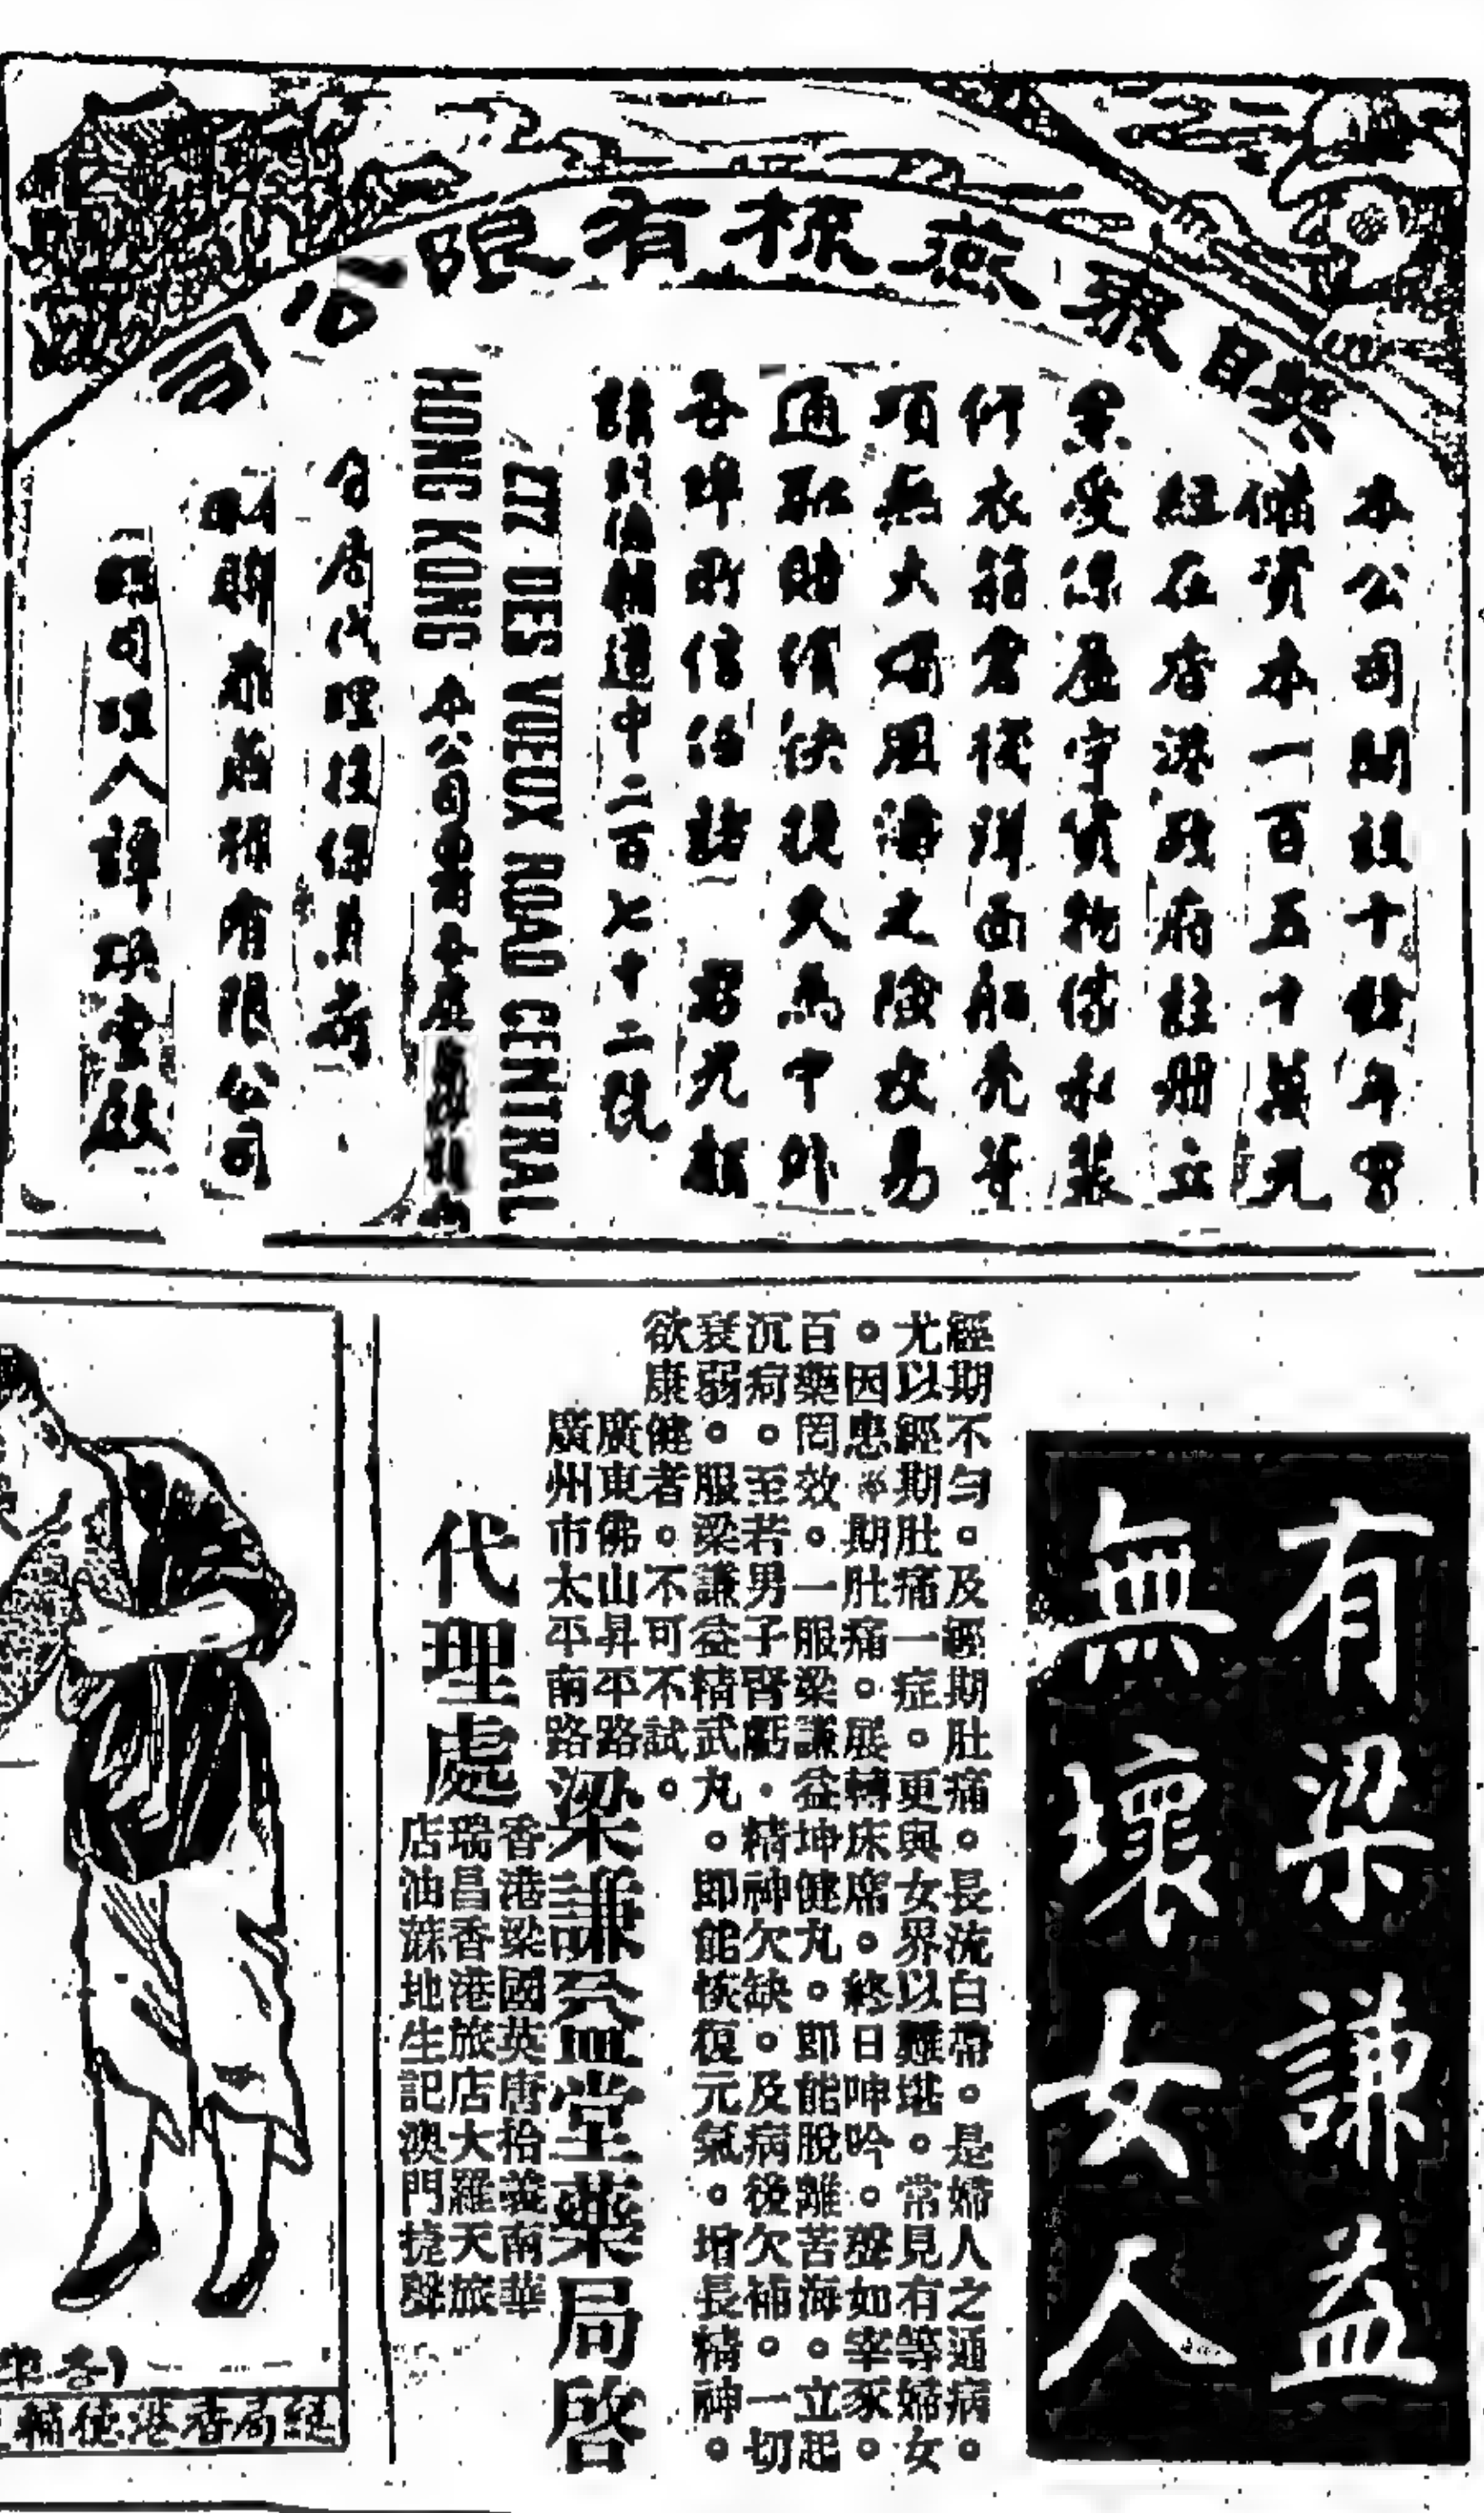 聯泰燕梳有限公司
本公司開設十餘年實
備資本一百五十萬元
經在香港政府註冊立
案受保屋宇貨物傢私裝
行衣箱洋面船壳等
項無火燭海之險易
通融賠償快捷久為中外
各埠所信仰諸 君光顧
請到德輔道中二百七十二號
DES VUEUX ROAD CENTRAL
HONG KONG 本公司
分局代理
聯泰燕梳有限公司
司理人譚煥堂啟
有梁謙益
無壞女人
經期不勻。及經期肚痛。長流白帶。是婦人之通病。
尤以經期肚痛一症。更與女界以難堪。常見有等婦女
。因患經期肚痛。展轉床席。終日呻吟。聲如宰豕。
百藥罔效。一服梁謙益坤健丸。即能脫離苦海。立起
沉疴。至若男子腎虧。精神欠缺。及病後欠補。一切
衰弱。服梁謙益精武丸。即能恢復元氣。增長精神。
欲康健者。不可不試。
廣東佛山昇平路
廣州市太平南路
梁謙益堂藥局啓
代理處
香港梁國英唐拾義南華
瑞昌香港旅店大羅天旅
店油蔴地生記澳門捷聲
局香港德輔